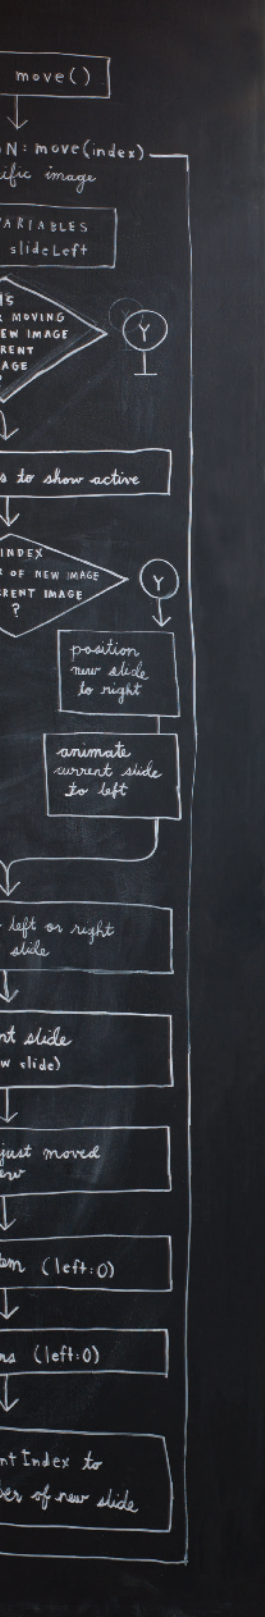 move()
N: move(index)
ific image
ARIABLES
slideLeft
IS
R MOVING
EW IMAGE
RENT
AGE
?
Y
s to show active
INDEX
R OF NEW IMAGE
RENT IMAGE
?
Y
position
new slide
to right
animate
current slide
to left
left or right
slide
nt slide
w slide)
just moved
ew
em (left:0)
rs (left:0)
nt Index to
ber of new slide